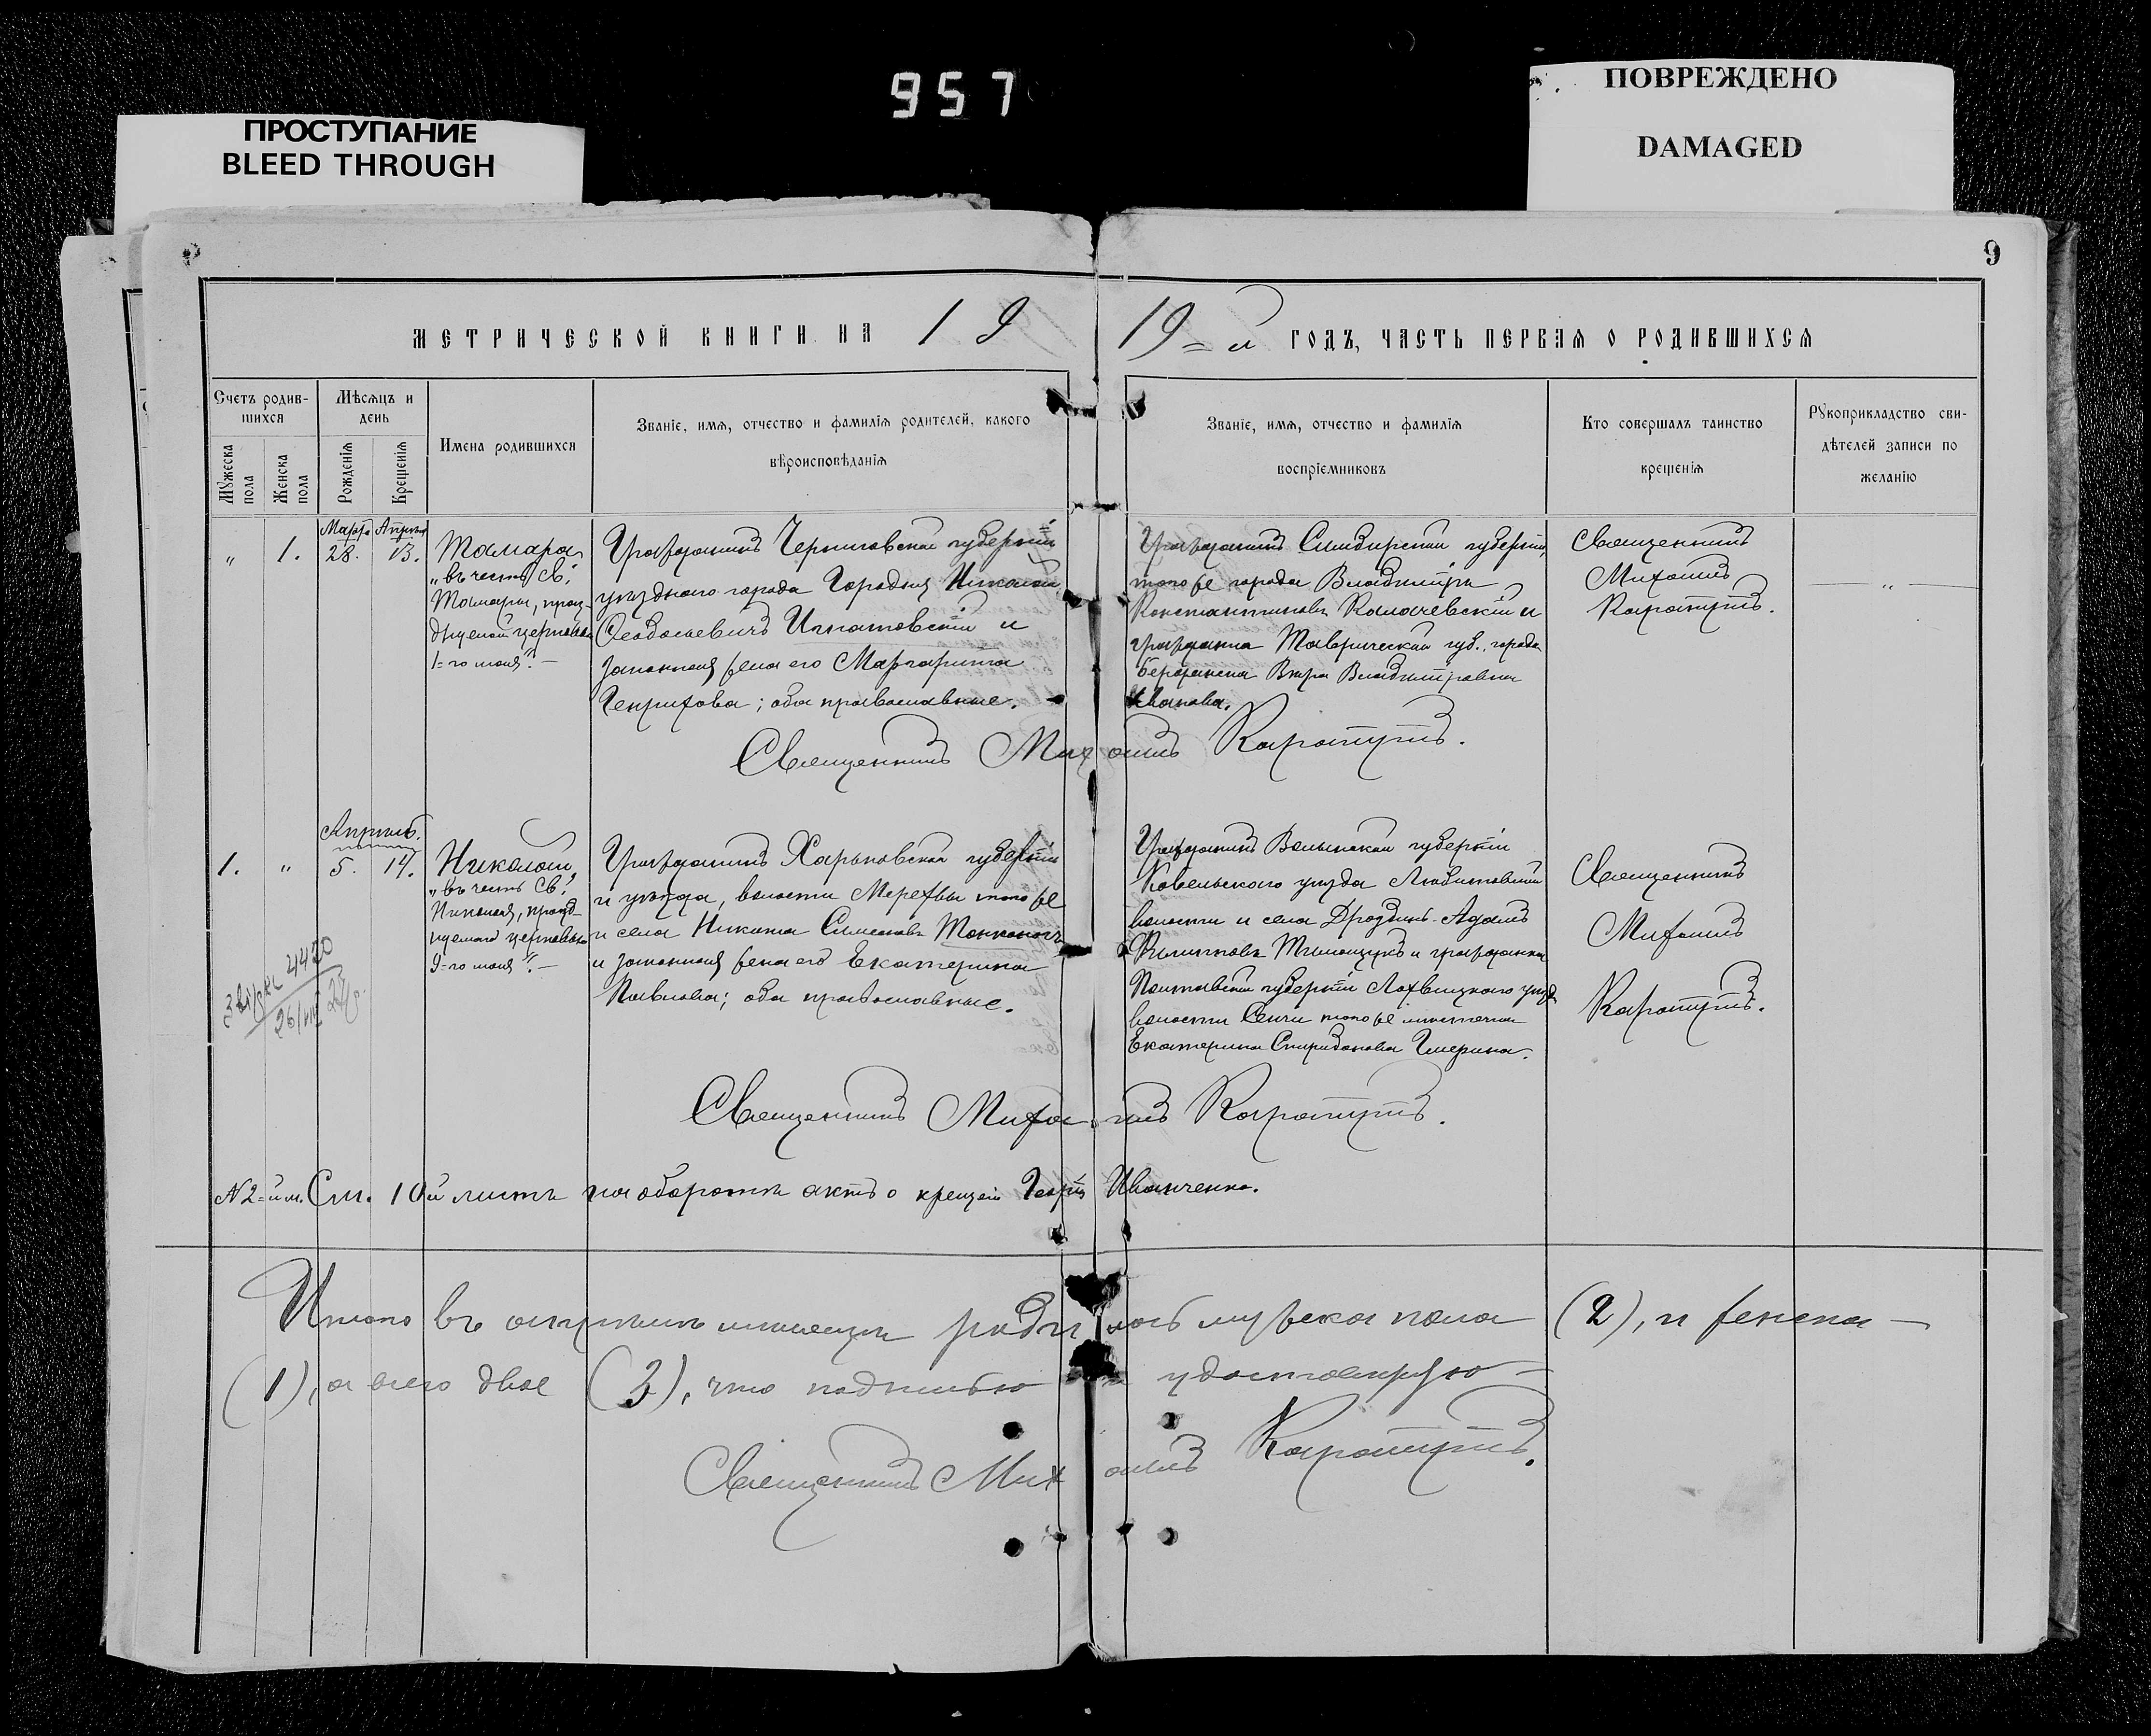 957
ПРОСТУПАНИЕ
BLEED THROUGH
ПОВРЕЖДЕНО
DAMAGED
9
МЕТРИЧЕСКОЙ КНИГИ НА 19 19=й ГОДЪ, ЧАСТЬ ПЕРВАЯ О РОДИВШИХСЯ
Счетъ родив-
шихся
Мужеска
пола
Женска
пола
Мѣсяцъ и
день
Рожденія
Крещенія
Имена родившихся
Званіе, имя, отчество и фамилія родителей, какого
вѣроисповѣданія
Званіе, имя, отчество и фамилія
воспріемниковъ
Кто совершалъ таинство
крещенія
Рукоприкладство сви-
дѣтелей записи по
желанію
" 1.
Марта Апрѣля
28. 13.
Тамара
"въ честь Св.
Тамары, праз-
днуемой церковью
1=го мая". —
Гражданинъ Черниговской губерніи
уѣзднаго города Городня Николай
Феодосьевичъ Игнатовскій и
законная жена его Маргарита
Генрихова; оба православные.
Гражданинъ Симбирской губерніи,
того же города Владиміръ
Константиновъ Калачевскій и
гражданка Таврической губ., города
Бердянска Вѣра Владимірова
Иванова.
Священникъ
Михаилъ
Каратутъ.
— " —
Священникъ Михаилъ Каратутъ.
1. "
Апрѣль.
5. 14.
Николай,
"въ честь Св.
Николая, празд-
нуемаго церковью
9=го мая". —
Гражданинъ Харьковской губерніи
и уѣзда, волости Мерефы того же
и села Никита Симеоновъ Тонконогъ
и законная жена его Екатерина
Павлова; оба православные.
Гражданинъ Волынской губерніи
Ковельскаго уѣзда Любитовской
волости и села Дроздни Адамъ
Филипповъ и гражданка
Полтавской губерніи Лохвицкаго уѣзда
волости Сенчи того же мѣстечка
Екатерина Спиридонова
Священникъ
Михаилъ
Каратутъ.
4420
Священникъ Михаилъ Каратутъ.
N2=й м. См. 10й листъ на оборотѣ актъ о крещеніи Георгія Иванченко.
Итого въ апрѣлѣ мѣсяцѣ родилось мужска пола (2), и женска —
(1), а всего двое (3), что подписью удостовѣряю —
Священникъ Михаилъ Каратутъ.